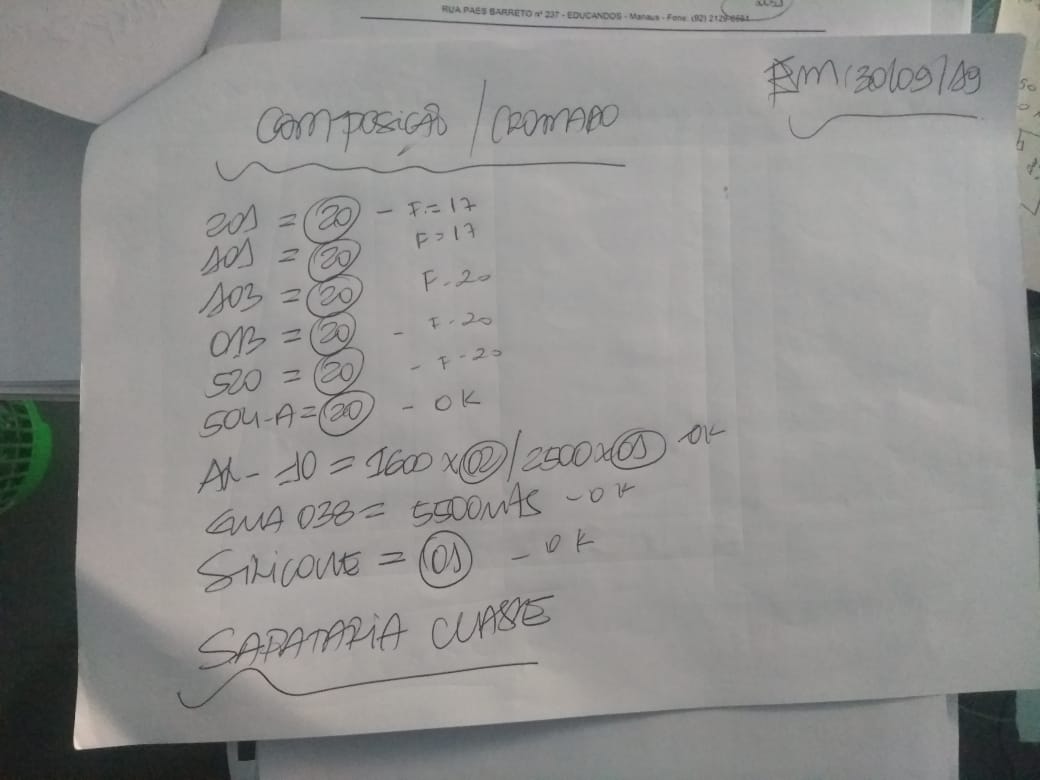 RUA PAES BARRETO nº 237 - EDUCANDOS - Manaus - Fone: (92) 2129-6661
EM: 30/09/19
COMPOSIÇÃO / CROMADO
201 = 20 - F.= 17
101 = 20 F= 17
103 = 20 F. 20
013 = 20 - F. 20
520 = 20 - F - 20
504-A = 20 - OK
AL - 10 = 1600 x 02 / 2500 x 01 OK
038 = 5500 - OK
SILICONE = 01 - OK
SAPATARIA CLASSE